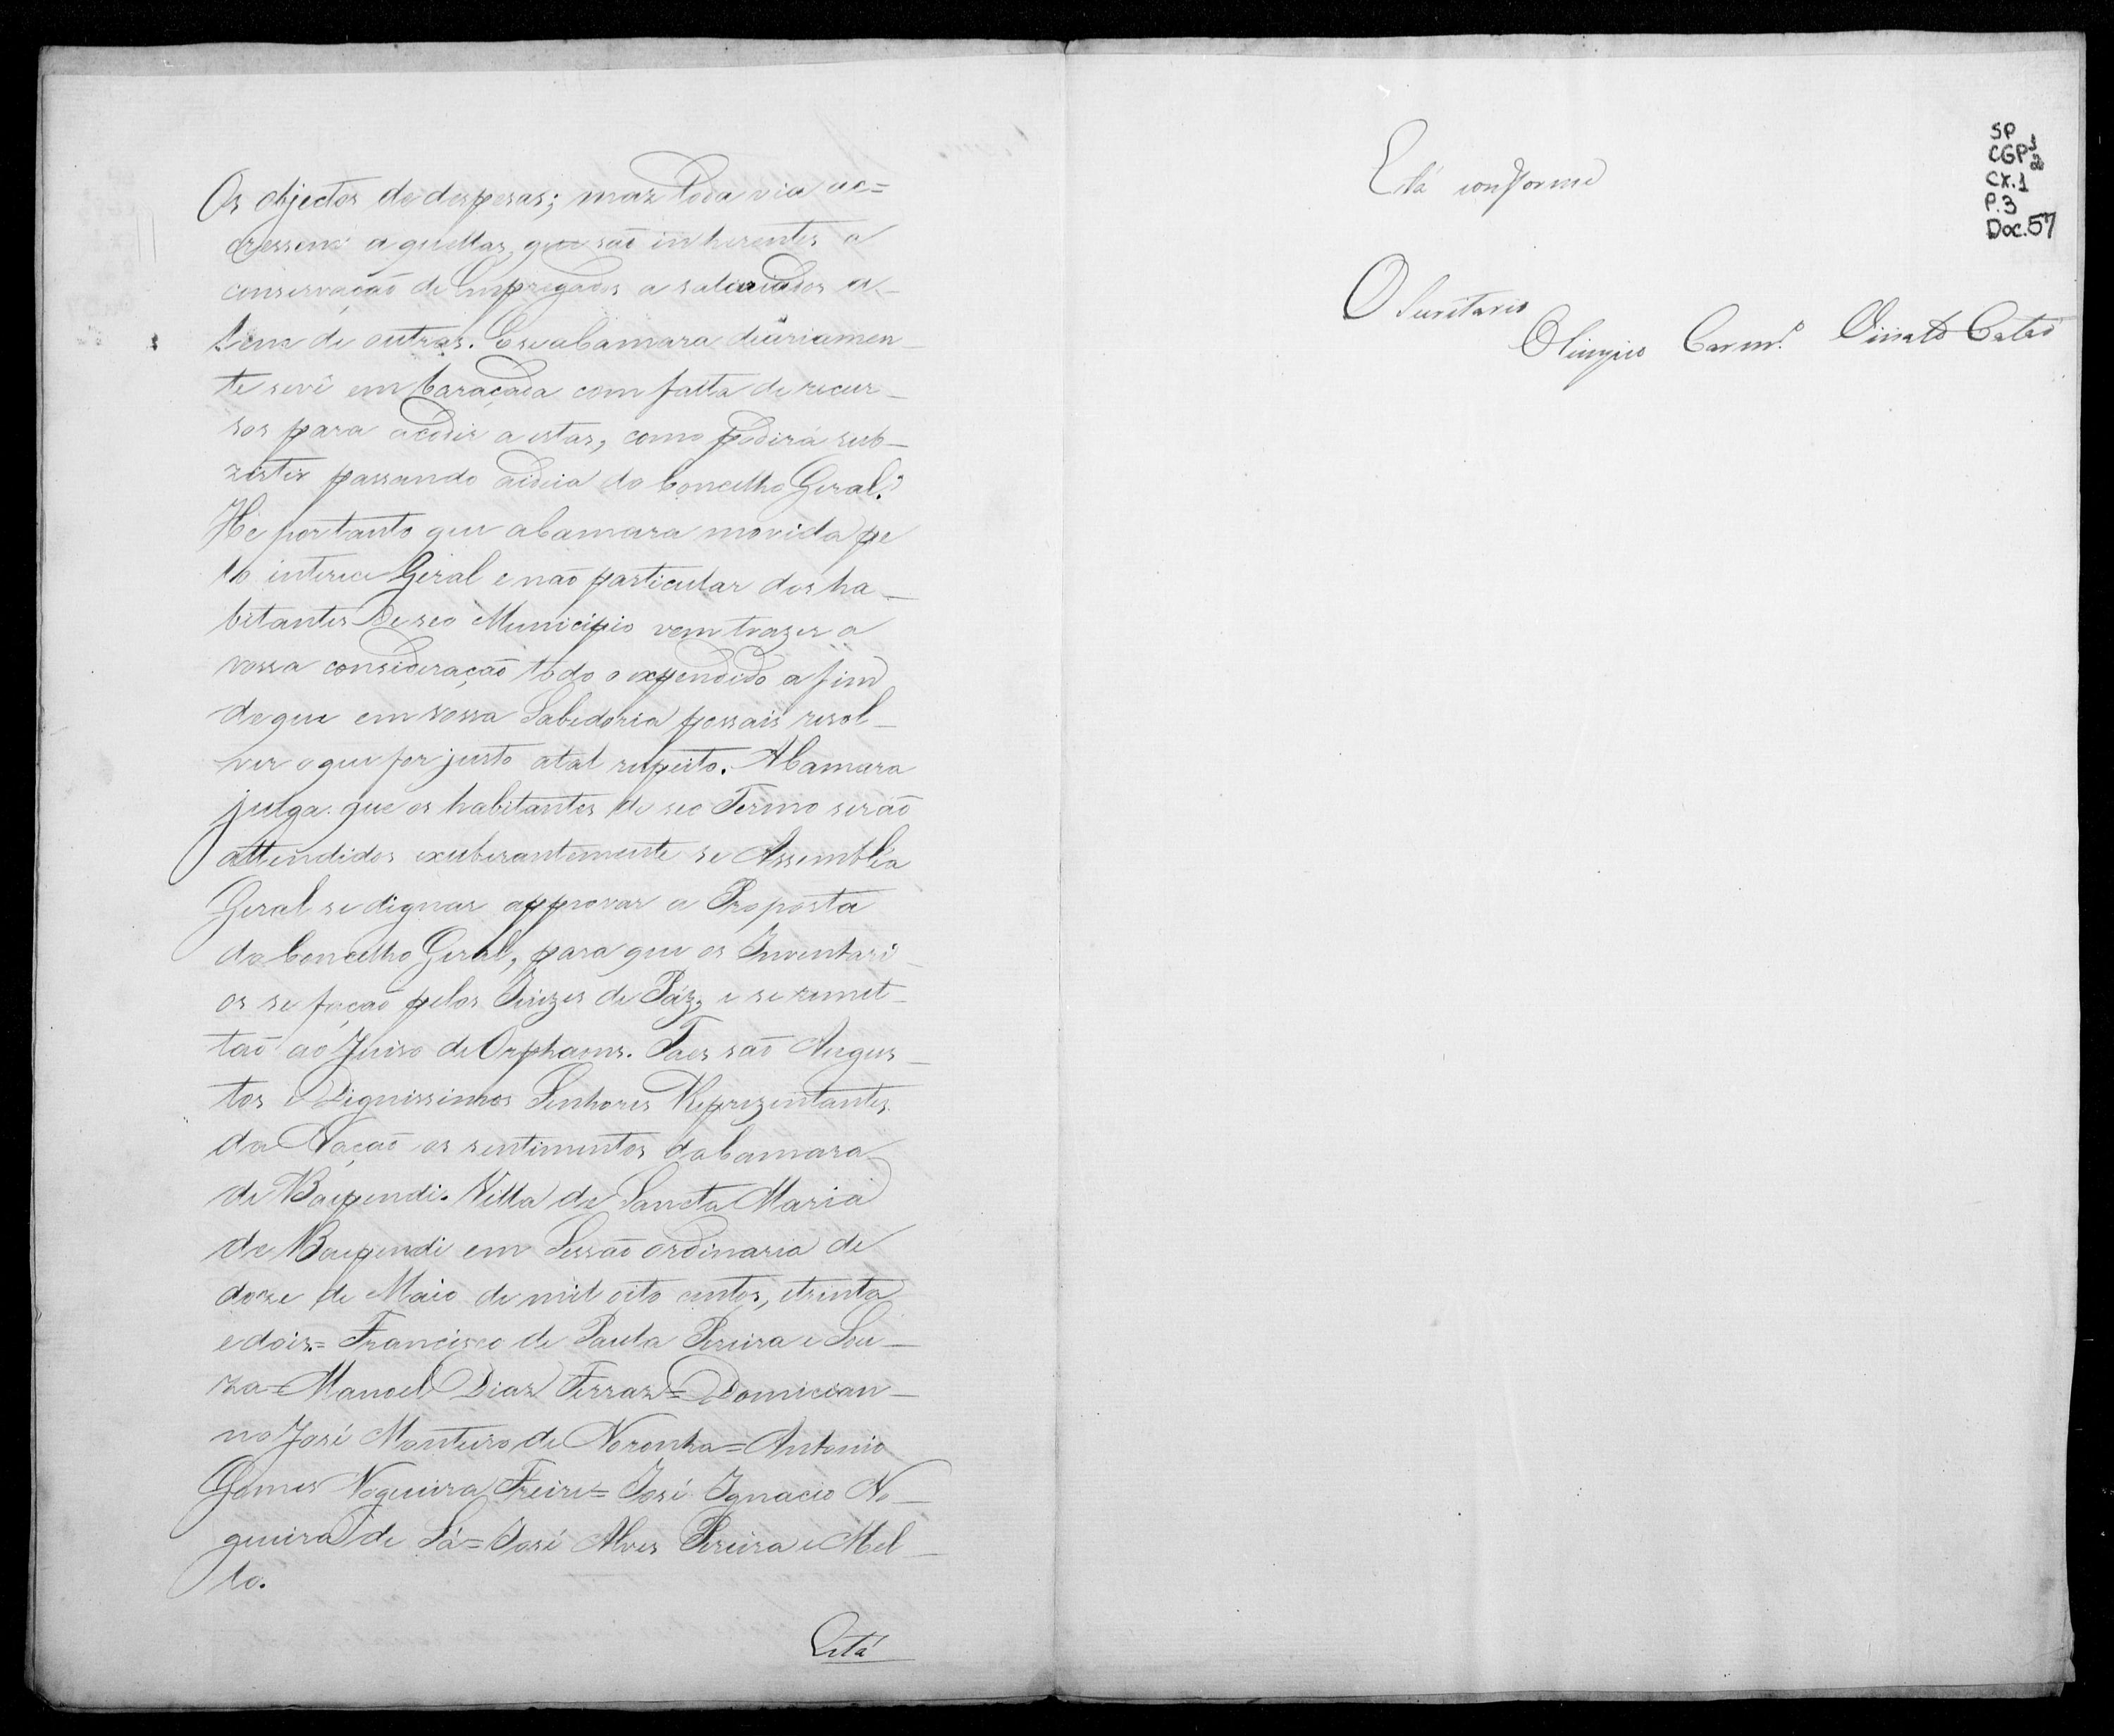 Os objectos de despesas; maz toda via ac=
cressem aquellas, que são inherentes a
conservação de Empregados a salariados a-
lem de outras. E se a Camara deariamen-
te se vê embaraçada com falta de recur-
sos para acodir a estas, como poderá sub-
zistir passando aideia do Concelho Geral?
Hé portanto que a Camara movida pe
lo interece Geral e não particular dos ha-
bitantes de seo Municipio vem trazer a
vossa consideração todo o expendido a fim
de que em vossa Sabedoria possais resol-
ver o que for justo a tal respeito. A Camara
julga que os habitantes de seo Termo serão
attendidos exuberantemente se Assembléa
Geral se dignar approvar a Proposta
do Concelho Geral, para que os Inventari-
os se fação pelos Juizes de Páz, e se remet-
tão ao Juiso de Orphaons. Taes são Augus-
tos e Dignissimos Senhores Reprezentantes
da Nação os sentimentos da Camara
de Baependi. Villa de Sancta Maria
de Baependi em Sessão ordinaria de
doze de Maio de mil oito centos, e trinta
e dois.= Francisco de Paula Pereira e Sou-
za= Manoel Diaz Ferraz= Domician-
no José Monteiro de Noronha= Antonio
Gomes Nogueira Freire= José Ignacio No-
gueira de Sá= José Alves Pereira e Mel-
lo.
Está
Está conforme
O Secretario
Olimpio Carnr.º Viriato Catão
SP
CGP1
2
CX.1
P.3
Doc.57